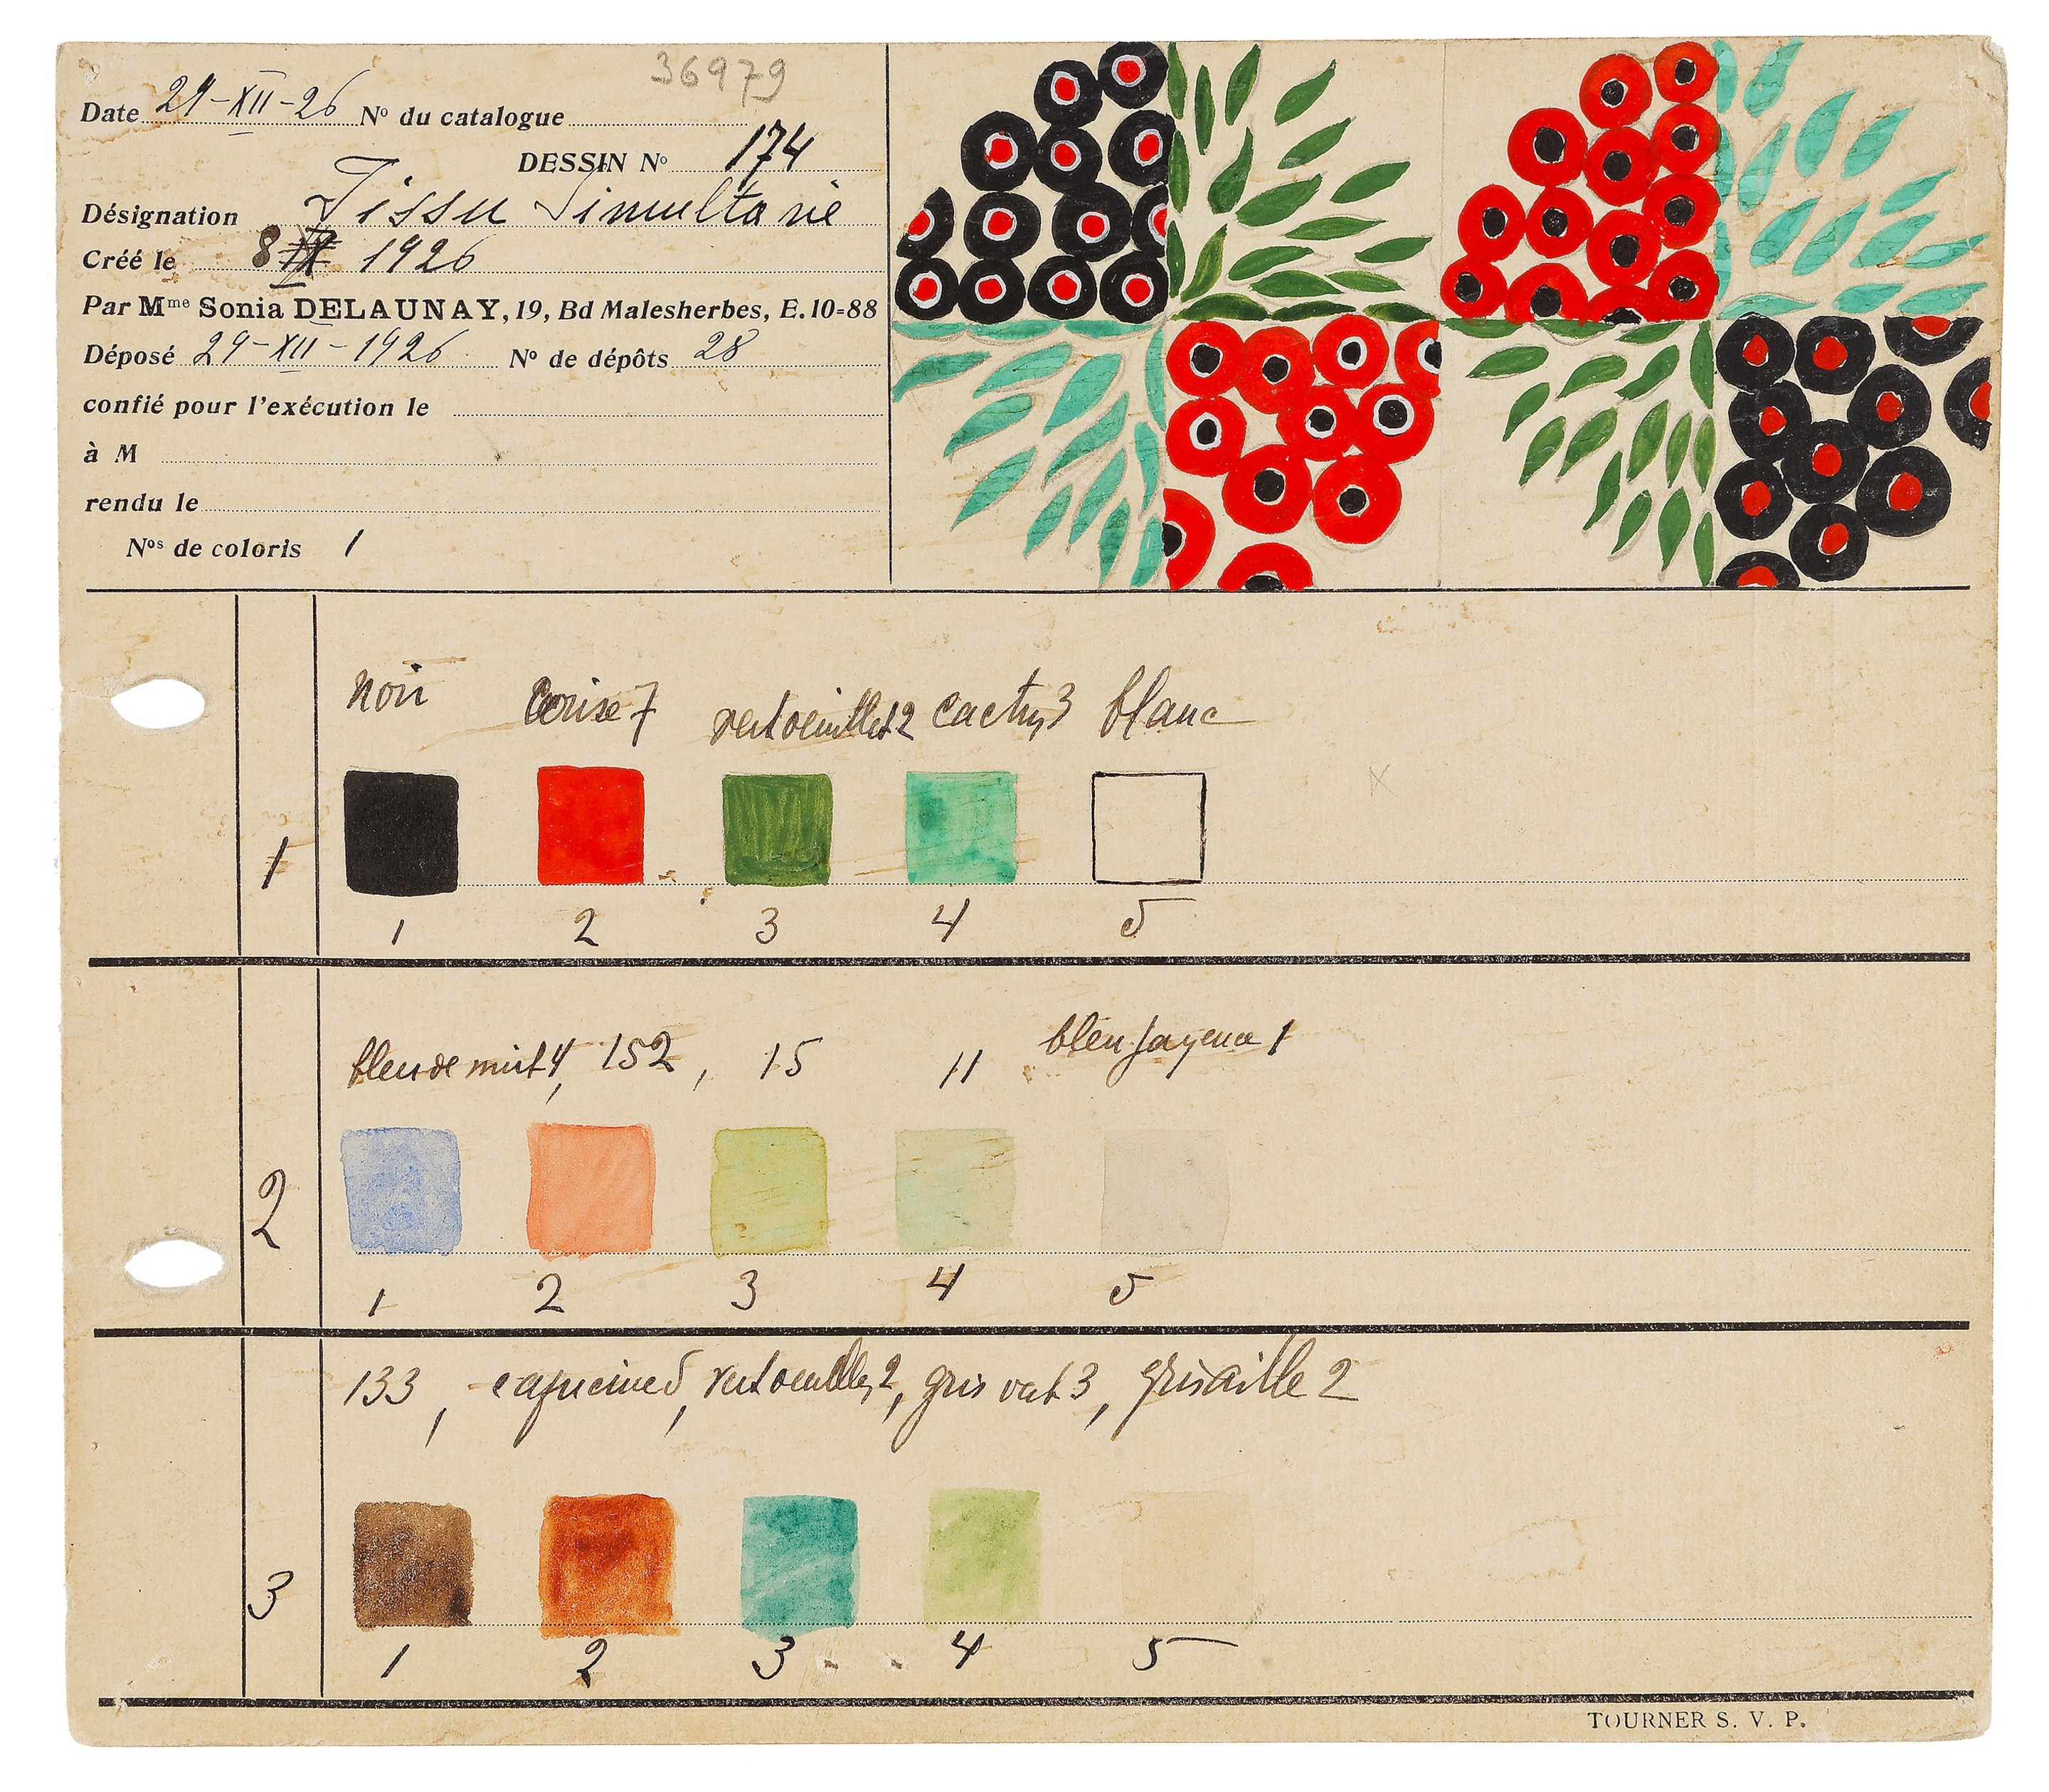 36979
Date 29-XII-26 No du catalogue
DESSIN No 174
Désignation Tissu Simultané
Créé le 8 1926
Par Mme Sonia DELAUNAY, 19, Bd Malesherbes, E. 10=88
Déposé 29-XII-1926 No de dépôts 28
confié pour l'exécution le
à M
rendu le
Nos de coloris 1
noir cerise 7 2 cactus 3 blanc
1
1 2 3 4 5
bleu de nuit 4, 152, 15 11 bleu fayence 1
2
1 2 3 4 5
133, capucine 5, 2, gris vert 3, grisaille 2
3
1 2 3 4 5
TOURNER S. V. P.